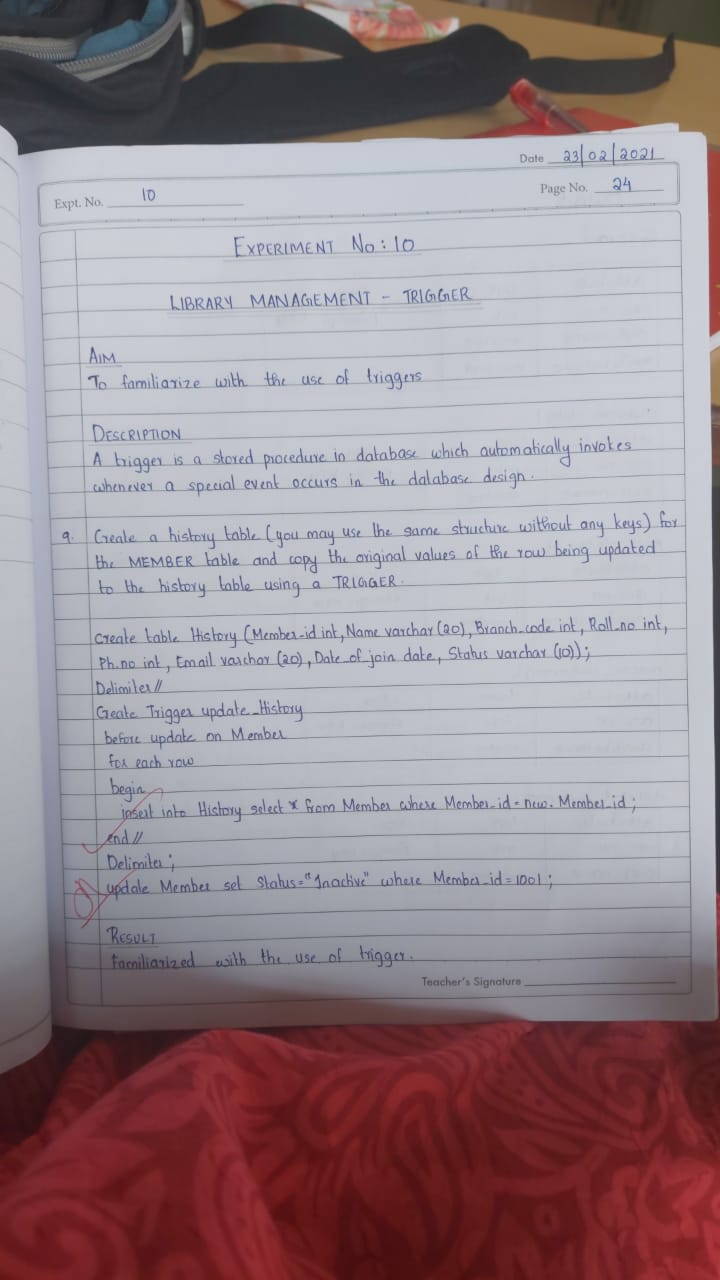 Date 23/02/2021
Expt. No. 10
Page No. 24
EXPERIMENT No: 10
LIBRARY MANAGEMENT - TRIGGER
AIM
To familiarize with the use of triggers
DESCRIPTION
A trigger is a stored procedure in database which automatically invokes
whenever a special event occurs in the database design.
9. Create a history table (you may use the same structure without any keys) for
the MEMBER table and copy the original values of the row being updated
to the history table using a TRIGGER.
Create table History (Member_id int, Name varchar (20), Branch_code int, Roll_no int,
Ph_no int, Email varchar (20), Date_of_join date, Status varchar (10));
Delimiter //
Create Trigger update_History
before update on Member
for each row
begin
insert into History select * from Member where Member_id = new. Member_id ;
end //
Delimiter ;
update Member set Status = "Inactive" where Member_id = 1001 ;
RESULT
Familiarized with the use of trigger.
Teacher's Signature